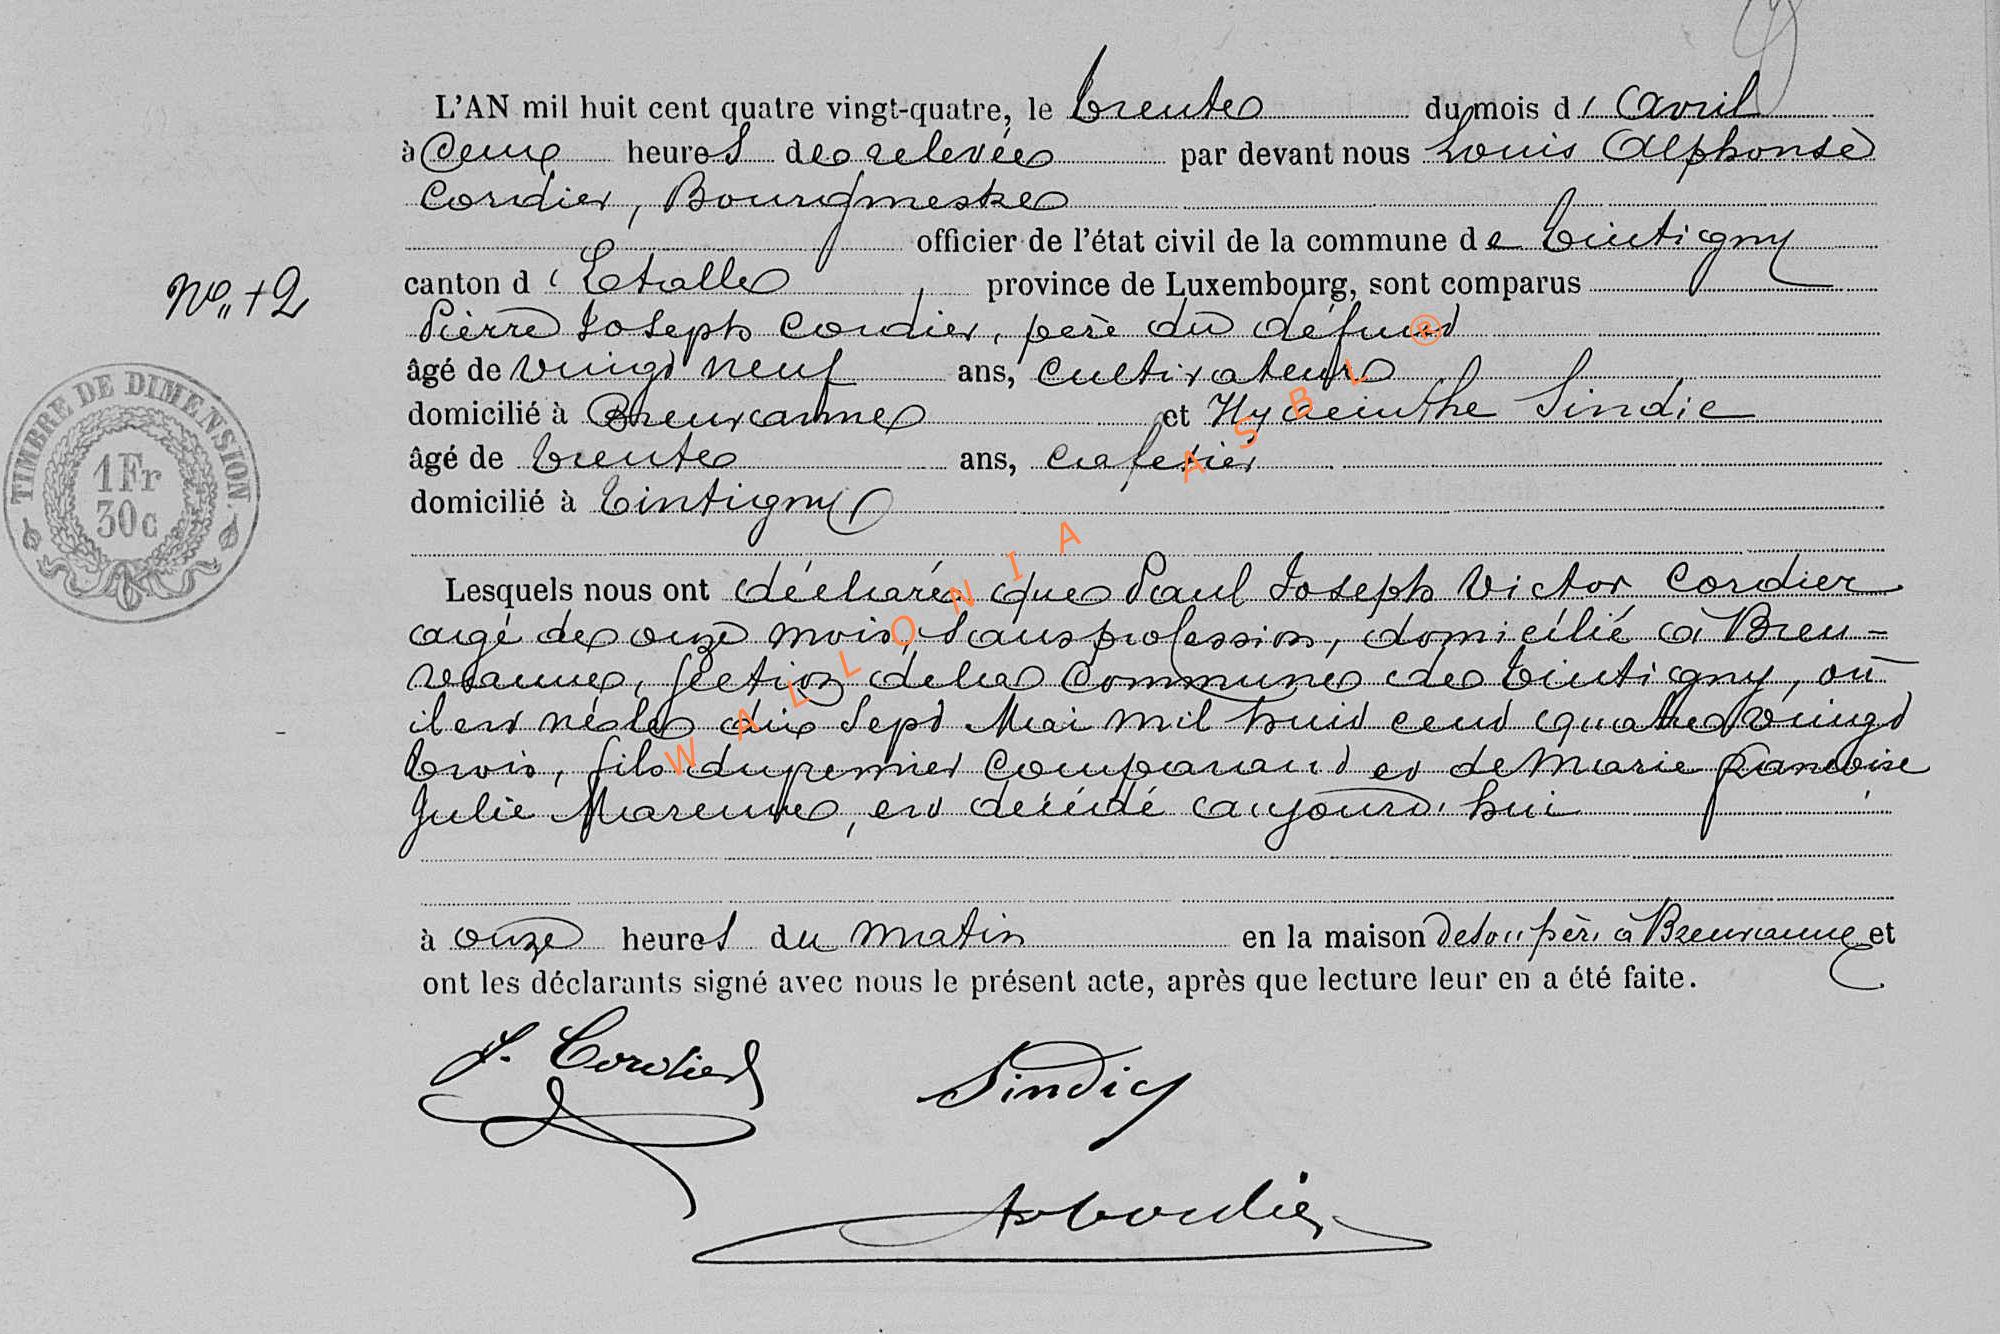 L'AN mil huit cent quatre vingt-quatre, le trente du mois d'Avril
à Deux heures de relevée par devant nous Louis Alphonse
Cordier, Bourgmestre
officier de l'état civil de la commune de Tintigny
canton d'Etalle province de Luxembourg, sont comparus
Pierre Joseph Cordier, père du défunt
âgé de vingt neuf ans, cultivateur
domicilié à Breuvanne et Hyacinthe Sindic
âgé de trente ans, cafetier
domicilié à Tintigny
Lesquels nous ont déclaré que Paul Joseph Victor Cordier
agé de onze mois, sans profession, domicilié à Breu-
vanne, section de la commune de Tintigny, où
il est né le dix sept Mai mil huit cent quatre vingt
trois, fils du premier comparant et de Marie Françoise
Julie, est décédé aujourd'hui
à onze heures du matin en la maison de son père à Breuvanne et
ont les déclarants signé avec nous le présent acte, après que lecture leur en a été faite.
J. Cordier
Sindic
A Cordier
N° 12
TIMBRE DE DIMENSION.
1 Fr
30c
WALLONIA ASBL ®